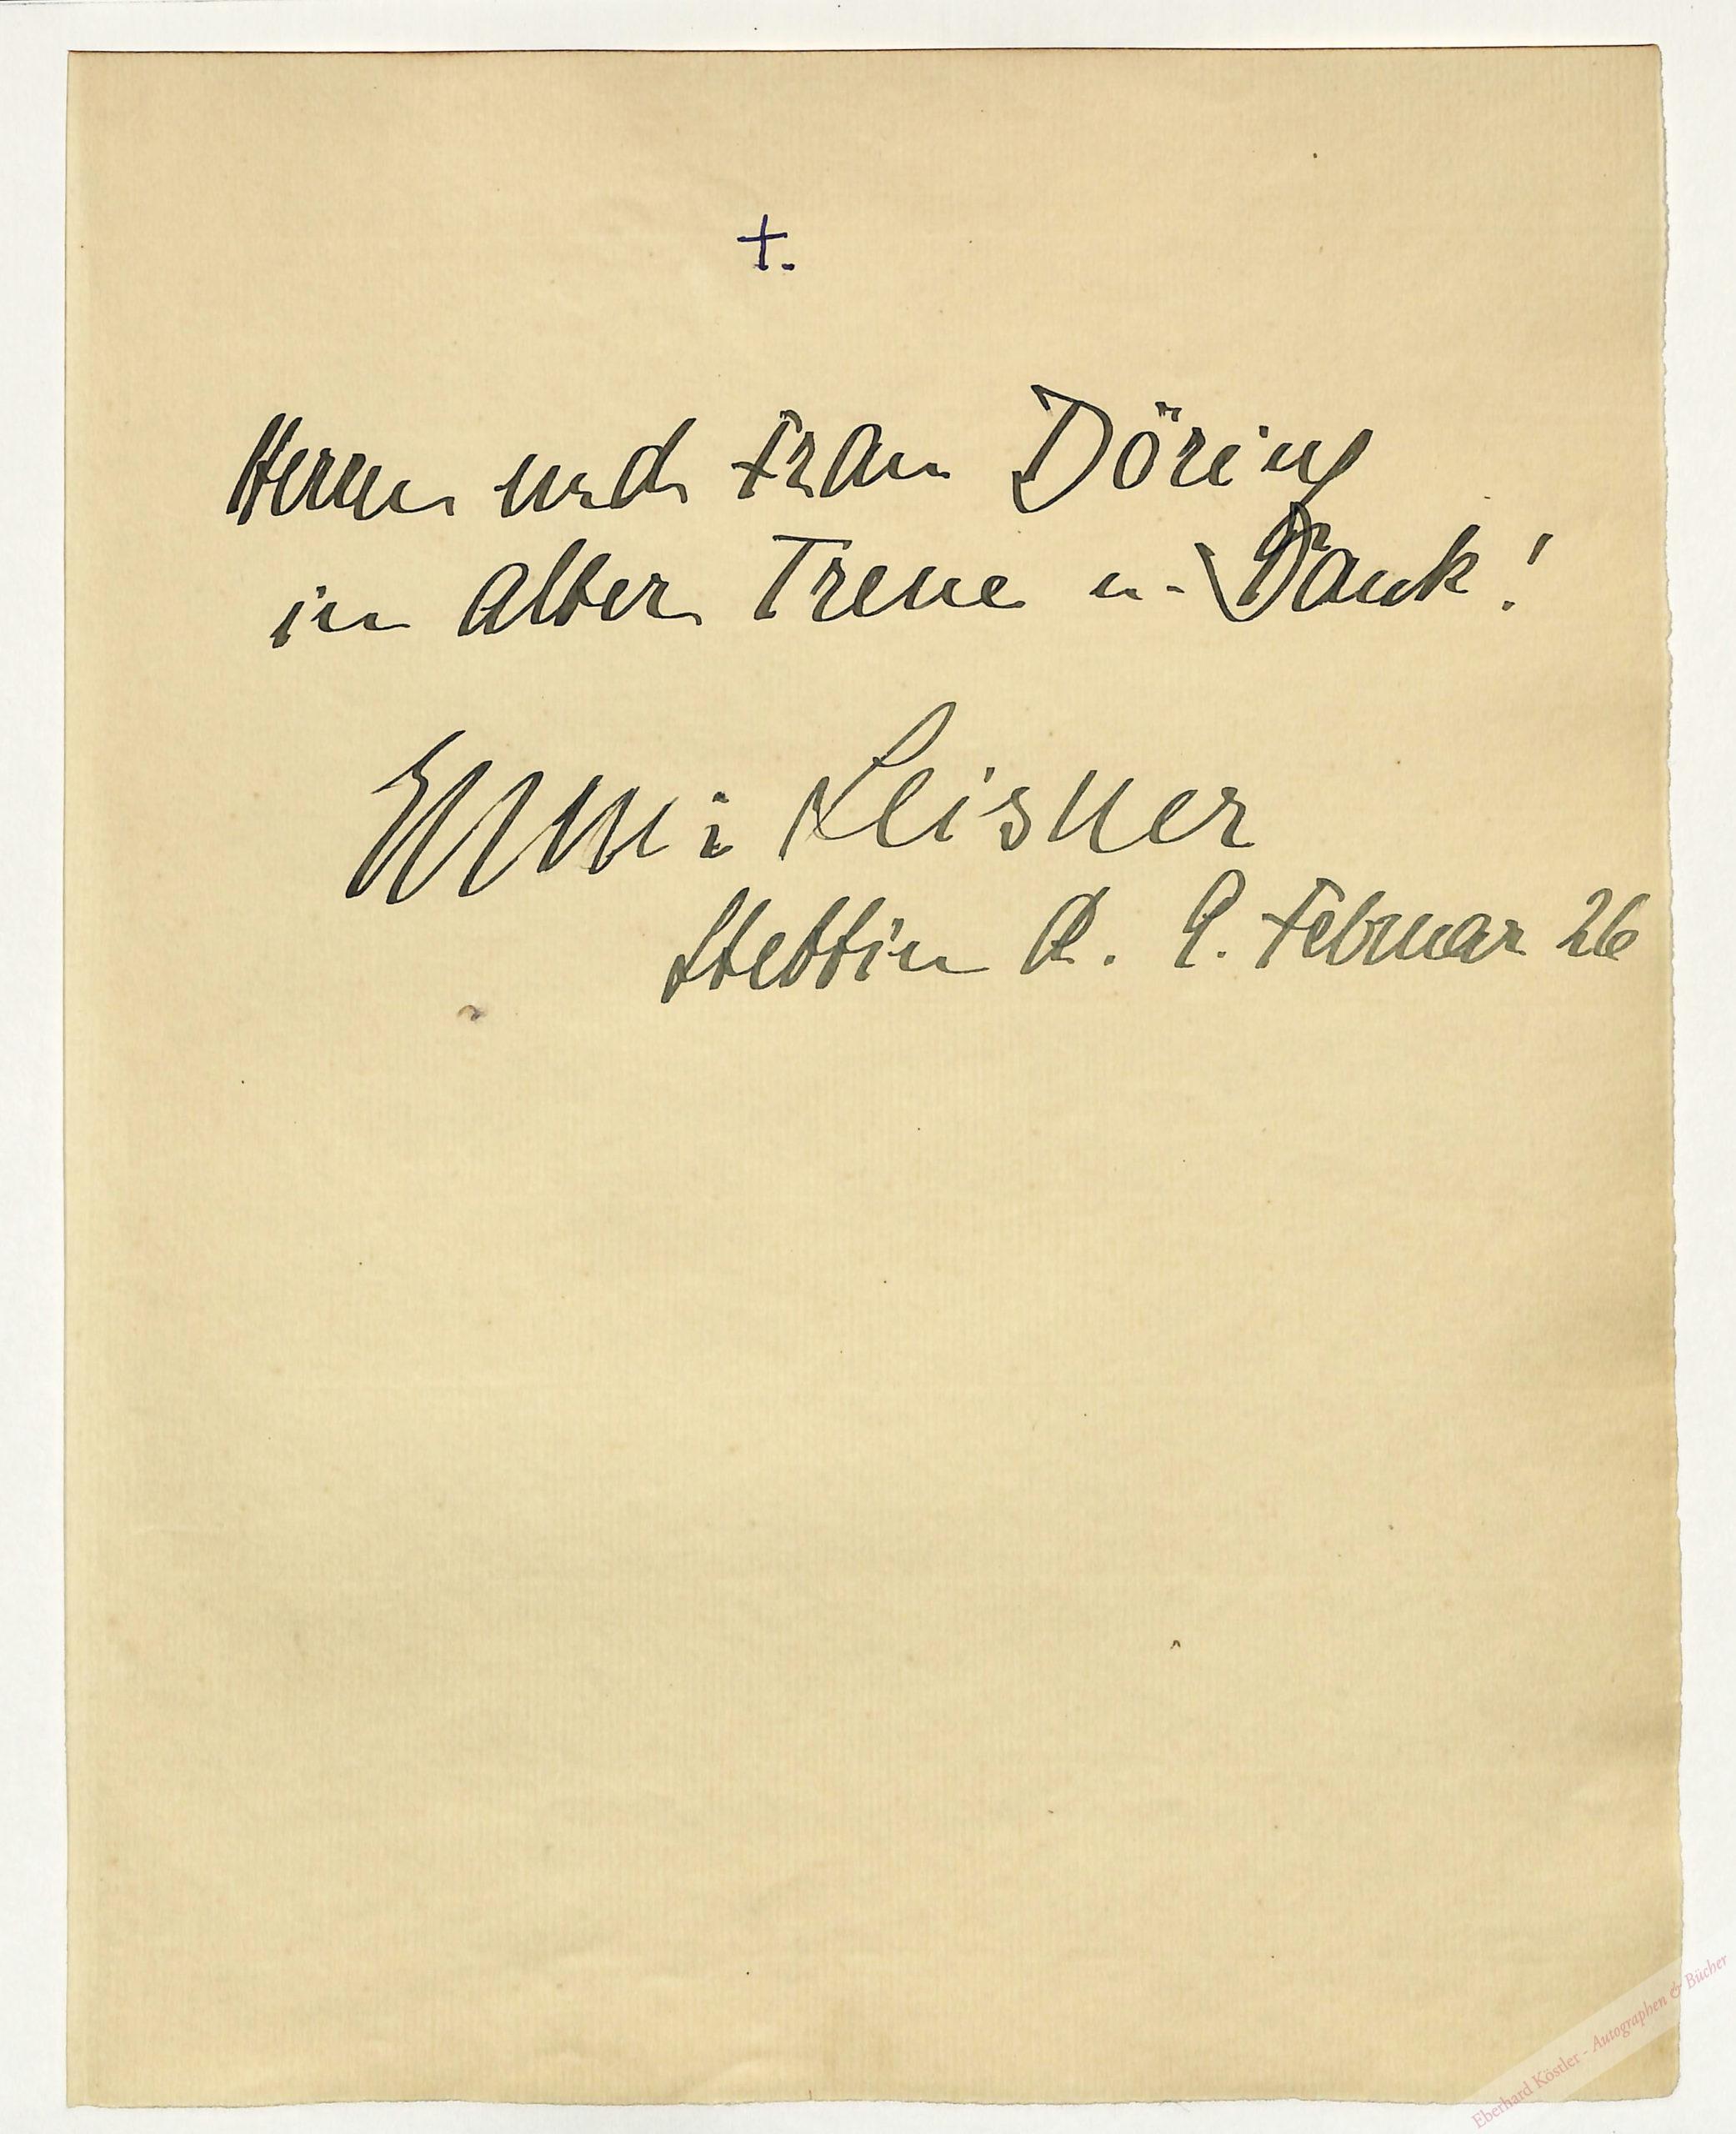 +.
Herrn und Frau Döring
in alter Treue u. Dank!
Emmi Leisner
Stettin d. 9. Februar 26
Eberhard Köstler - Autographen & Bücher